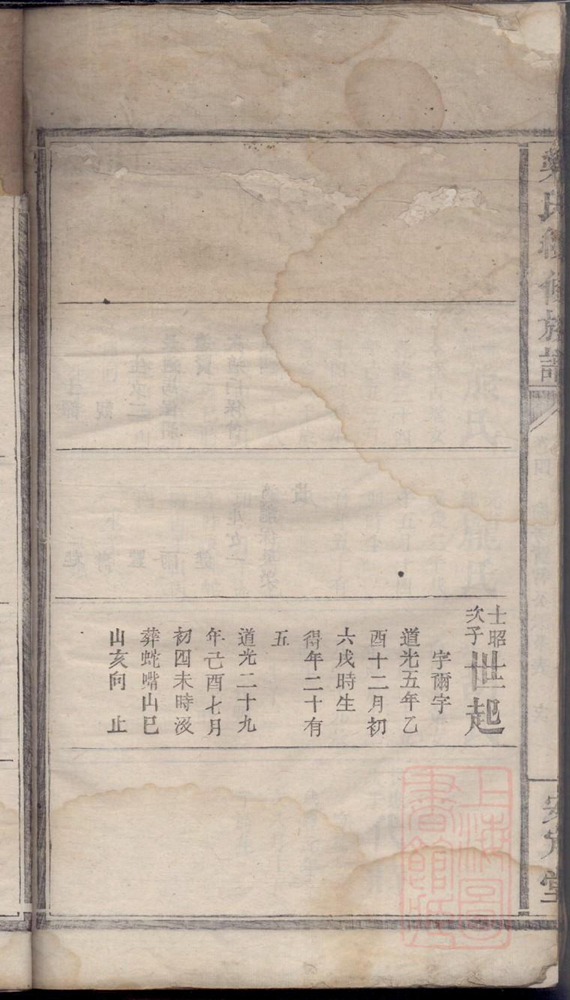 氏續修族譜
士昭
次子
世起
字爾字
道光五年乙
酉十二月初
六戌時生
得年二十有
五
道光二十九
年己酉七月
初四未時沒
葬蛇嘴山巳
山亥向 止
安定堂
上海圖
書館藏